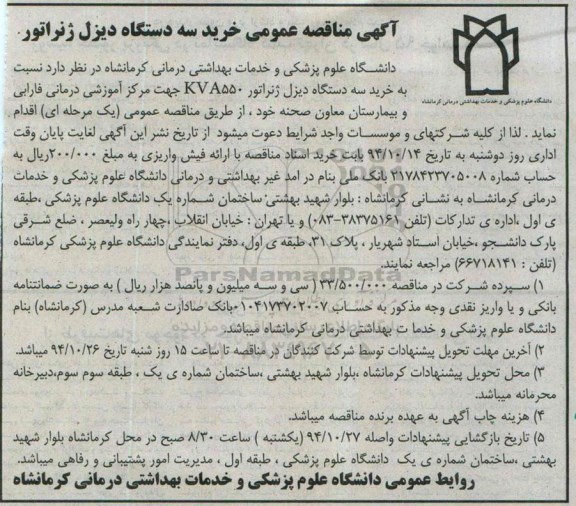 آگهی مناقصه عمومی خرید سه دستگاه دیزل ژنراتور
دانشگاه علوم پزشکی و خدمات بهداشتی درمانی کرمانشاه
دانشگاه علوم پزشکی و خدمات بهداشتی درمانی کرمانشاه در نظر دارد نسبت
به خرید سه دستگاه دیزل ژنراتور KVA۵۵۰ جهت مرکز آموزشی درمانی فارابی
و بیمارستان معاون صحنه خود ، از طریق مناقصه عمومی (یک مرحله ای) اقدام
نماید . لذا از کلیه شرکتهای و موسسات واجد شرایط دعوت میشود از تاریخ نشر این آگهی لغایت پایان وقت
اداری روز دوشنبه به تاریخ ۹۴/۱۰/۱۴ بابت خرید اسناد مناقصه با ارائه فیش واریزی به مبلغ ۲۰۰/۰۰۰ریال به
حساب شماره ۲۱۷۸۴۲۳۷۰۵۰۰۸ بانک ملی بنام در امد غیر بهداشتی و درمانی دانشگاه علوم پزشکی و خدمات
درمانی کرمانشاه به نشانی کرمانشاه : بلوار شهید بهشتی؛ ساختمان شماره یک دانشگاه علوم پزشکی ،طبقه
ی اول ،اداره ی تدارکات (تلفن ۳۸۳۷۵۱۶۱-۰۸۳) و یا تهران : خیابان انقلاب ،چهار راه ولیعصر ، ضلع شرقی
پارک دانشجو ،خیابان استاد شهریار ، پلاک ۳۱، طبقه ی اول، دفتر نمایندگی دانشگاه علوم پزشکی کرمانشاه
(تلفن : ۶۶۷۱۸۱۴۱) مراجعه نمایند.
۱) سپرده شرکت در مناقصه ۳۳/۵۰۰/۰۰۰ ( سی و سه میلیون و پانصد هزار ریال ) به صورت ضمانتنامه
بانکی و یا واریز نقدی وجه مذکور به حساب ۰۱۰۴۱۷۳۷۰۲۰۰۷ بانک صادارت شعبه مدرس (کرمانشاه) بنام
دانشگاه علوم پزشکی و خدما ت بهداشتی درمانی کرمانشاه میباشد.
۲) آخرین مهلت تحویل پیشنهادات توسط شرکت کنندگان در مناقصه تا ساعت ۱۵ روز شنبه تاریخ ۹۴/۱۰/۲۶ میباشد.
۳) محل تحویل پیشنهادات کرمانشاه ،بلوار شهید بهشتی ،ساختمان شماره ی یک ، طبقه سوم سوم،دبیرخانه
محرمانه میباشد.
۴) هزینه چاپ آگهی به عهده برنده مناقصه میباشد.
۵) تاریخ بازگشایی پیشنهادات واصله ۹۴/۱۰/۲۷ (یکشنبه ) ساعت ۸/۳۰ صبح در محل کرمانشاه بلوار شهید
بهشتی ،ساختمان شماره ی یک دانشگاه علوم پزشکی ، طبقه اول ، مدیریت امور پشتیبانی و رفاهی میباشد.
روابط عمومی دانشگاه علوم پزشکی و خدمات بهداشتی درمانی کرمانشاه
ParsNamadData